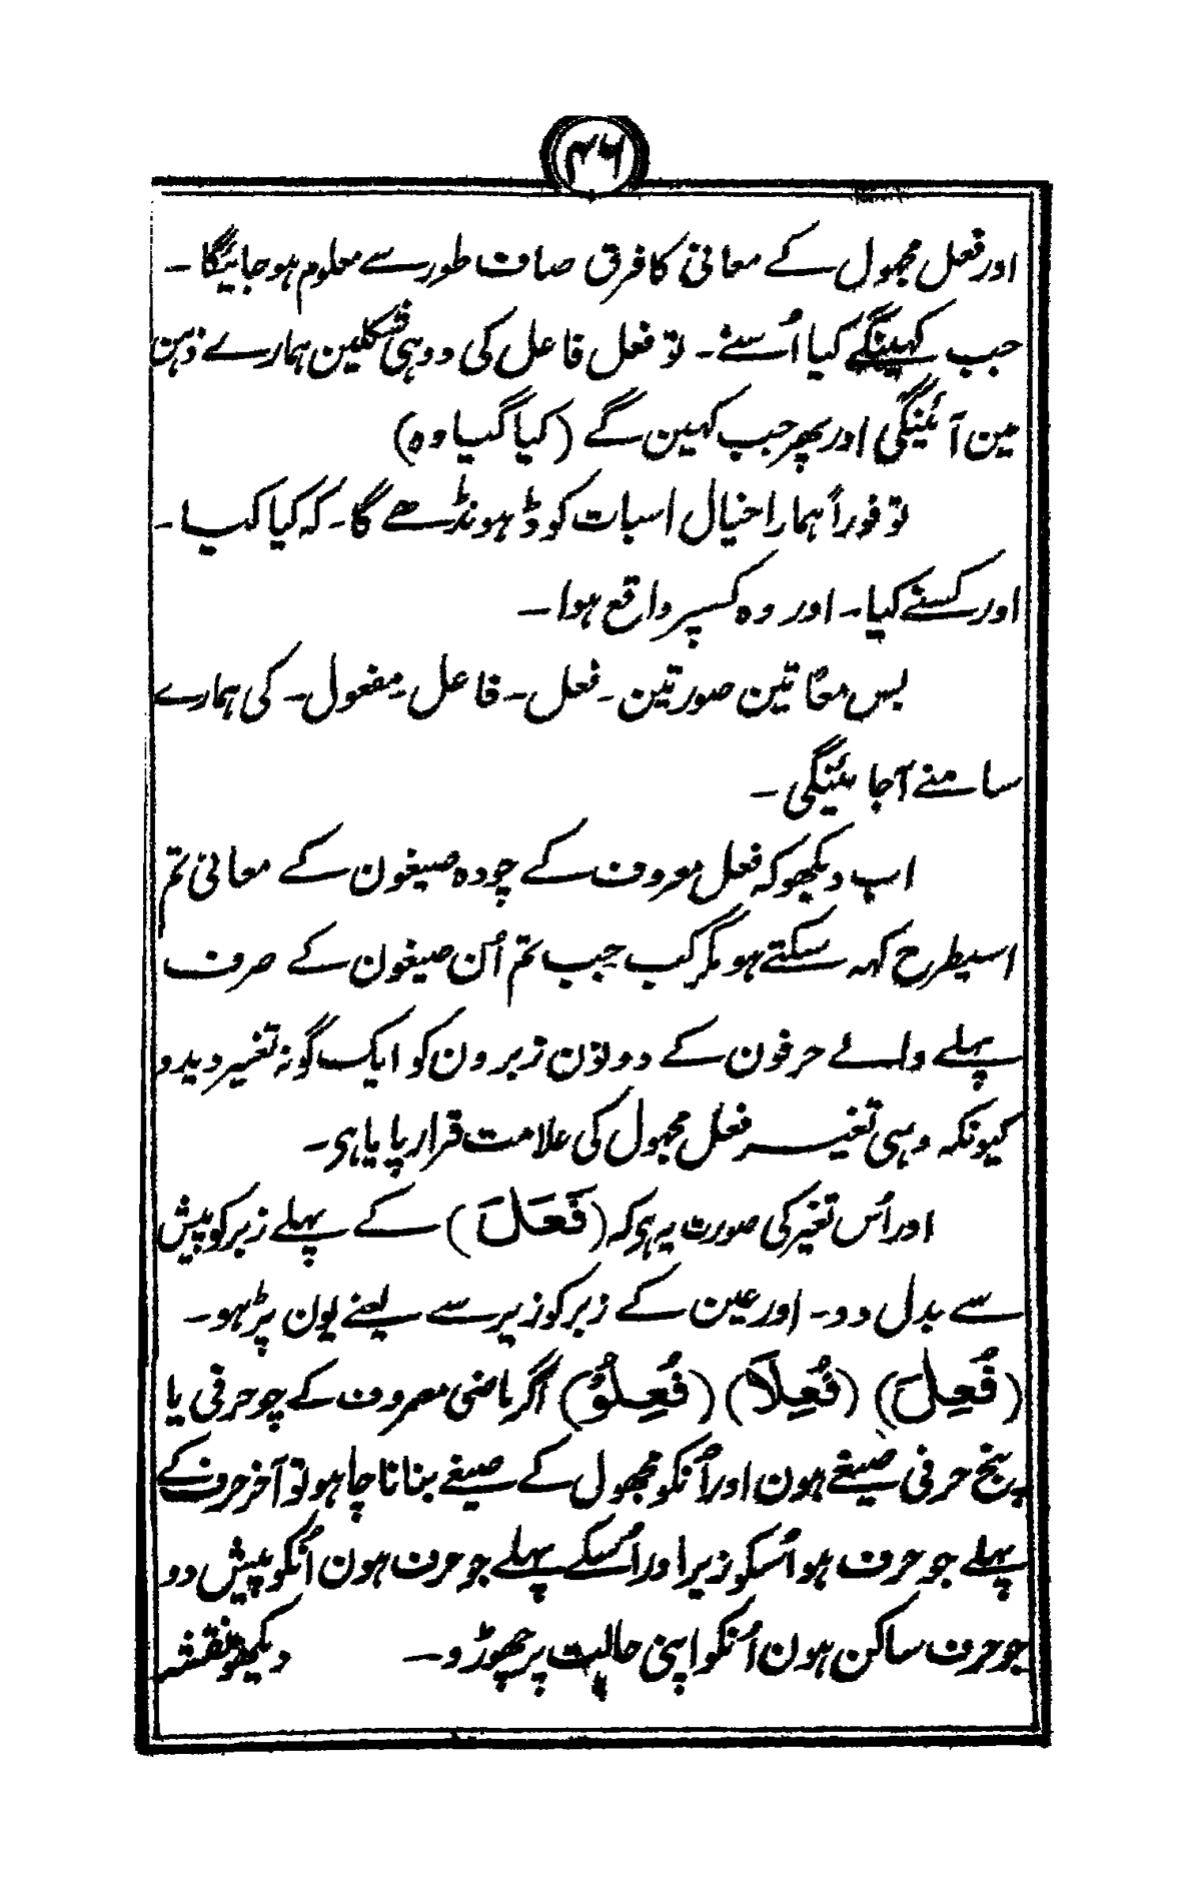 ۴۶
اور فعل مجہول کے معانی کا فرق صاف طور سے معلوم ہو جائیگا۔
جب کہینگے کیا اُسنے۔ تو فعل فاعل کی دو ہی شکلین ہمارے ذہن
مین آئینگی اور پھر جب کہین گے (کیا گیا وہ)
تو فوراً ہمارا خیال اسبات کو ڈہونڈھے گا۔ کہ کیا کیا۔
اور کسنے کیا۔ اور وہ کسپر واقع ہوا۔
بس معاً تین صورتین۔ فعل۔ فاعل۔ مفعول۔ کی ہمارے
سامنے آجائینگی۔
اب دیکھو کہ فعل معروف کے چودہ صیغون کے معانی تم
اسیطرح کہہ سکتے ہو مگر کب جب تم اُن صیغون کے صرف
پہلے والے حرفون کے دونون زبرون کو ایک گونہ تغیر دیدو
کیونکہ وہی تغیر فعل مجہول کی علامت قرار پایا ہی۔
اور اُس تغیر کی صورت یہ ہی کہ (فَعَلَ) کے پہلے زبر کو پیش
سے بدل دو۔ اور عین کے زبر کو زیر سے لیعنے یون پڑہو۔
(فُعِلَ) (فُعِلَا) (فُعِلُوْ) اگر ماضی معروف کے چو حرفی یا
پنج حرفی صیغے ہون اور اُنکو مجہول کے صیغے بنانا چاہو تو آخر حرف کے
پہلے جو حرف ہو اُسکو زیر اور اُسکے پہلے جو حرف ہون اُنکو پیش دو
جو حرف ساکن ہون اُنکو اپنی حالت پر چھوڑو۔ دیکھو نقشہ